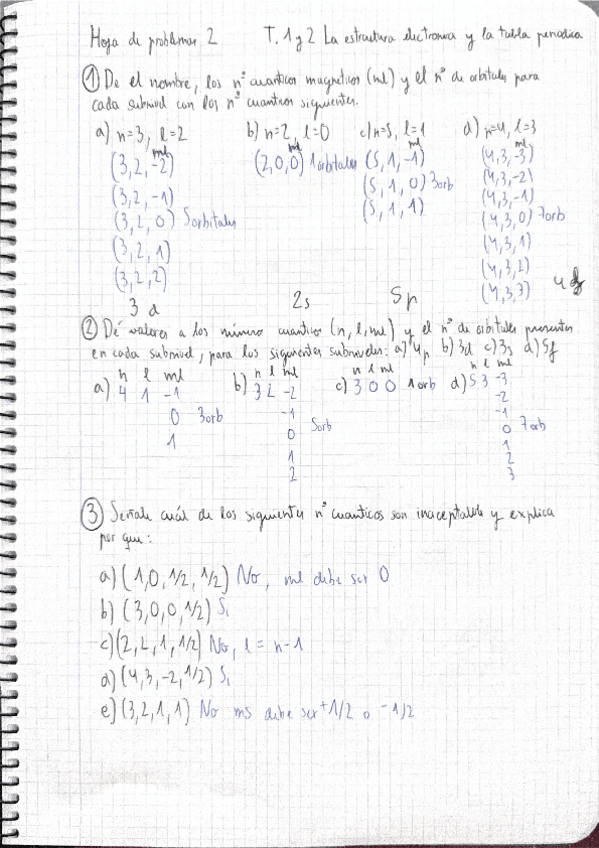 Hoja de problemas 2 T. 1 y 2 La estructura electronica y la tabla periodica
① De el nombre, los nº cuanticos magneticos (ml) y el nº de orbitales para
cada subnivel con los nº cuanticos siguientes.
a) n=3, l=2 b) n=2, l=0 c) n=5, l=1 d) n=4, l=3
ml ml ml ml
(3,2,-2) (2,0,0) 1 orbitales (5,1,-1) (4,3,-3)
(3,2,-1) (5,1,0) 3 orb (4,3,-2)
(3,2,0) 5 orbitales (5,1,1) (4,3,-1)
(3,2,1) (4,3,0) 7 orb
(3,2,2) (4,3,1)
(4,3,2)
(4,3,3)
3 d 2s 5p 4f
② Dé valores a los número cuantico (n, l, ml) y el nº de orbitales presentes
en cada subnivel, para los siguientes subniveles: a) 4p b) 3d c) 3s d) 5f
n l ml n l ml n l ml n l ml
a) 4 1 -1 b) 3 2 -2 c) 3 0 0 1 orb d) 5 3 -3
0 3 orb -1 -2
1 0 5 orb -1
1 0 7 orb
2 1
2
3
③ Señale cuál de los siguientes nº cuanticos son inaceptables y explica
por que:
a) (1,0,1/2,1/2) No, ml debe ser 0
b) (3,0,0,1/2) Si
c) (2,2,1,1/2) No, l = n-1
d) (4,3,-2,1/2) Si
e) (3,2,1,1) No ms debe ser +1/2 o -1/2